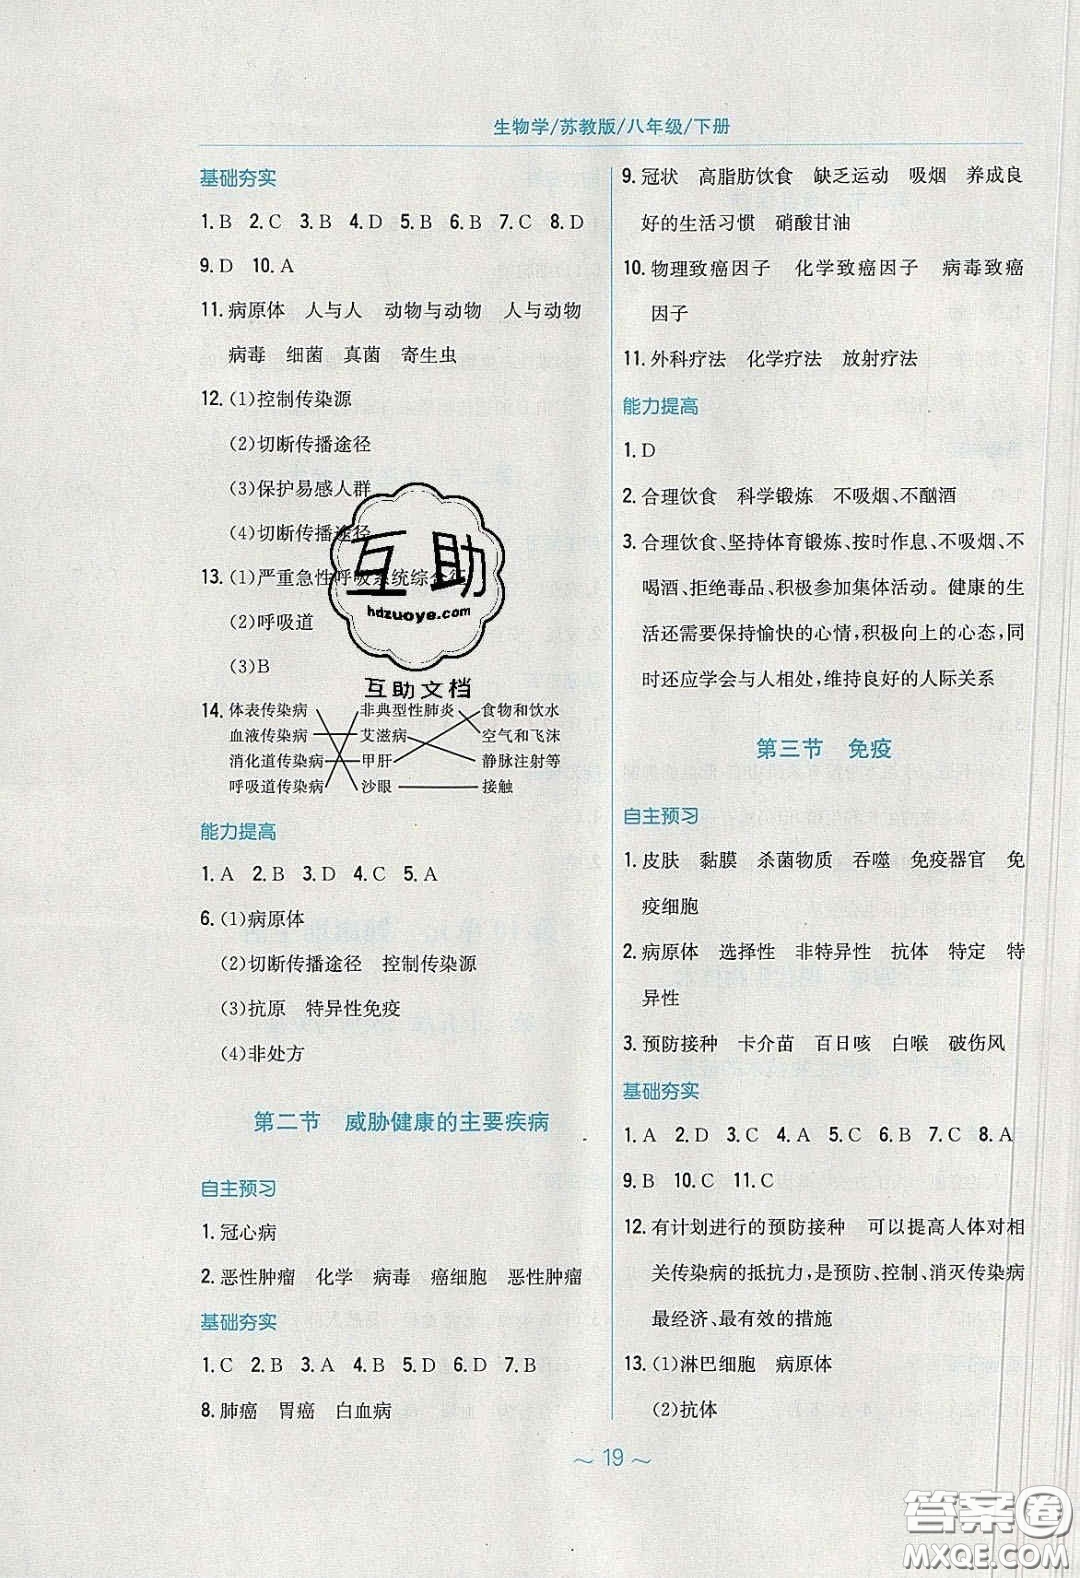 生物学/苏教版/八年级/下册
基础夯实
1. B 2. C 3. B 4. D 5. B 6. B 7. C 8. D
9. D 10. A
11. 病原体 人与人 动物与动物 人与动物
病毒 细菌 真菌 寄生虫
12. (1)控制传染源
(2)切断传播途径
(3)保护易感人群
(4)切断传播途径
13. (1)严重急性呼吸系统综合征
(2)呼吸道
(3)B
14. 体表传染病 非典型性肺炎 食物和饮水
血液传染病 艾滋病 空气和飞沫
消化道传染病 甲肝 静脉注射等
呼吸道传染病 沙眼 接触
能力提高
1. A 2. B 3. D 4. C 5. A
6. (1)病原体
(2)切断传播途径 控制传染源
(3)抗原 特异性免疫
(4)非处方
第二节 威胁健康的主要疾病
自主预习
1. 冠心病
2. 恶性肿瘤 化学 病毒 癌细胞 恶性肿瘤
基础夯实
1. C 2. B 3. A 4. B 5. D 6. D 7. B
8. 肺癌 胃癌 白血病
9. 冠状 高脂肪饮食 缺乏运动 吸烟 养成良
好的生活习惯 硝酸甘油
10. 物理致癌因子 化学致癌因子 病毒致癌
因子
11. 外科疗法 化学疗法 放射疗法
能力提高
1. D
2. 合理饮食 科学锻炼 不吸烟、不酗酒
3. 合理饮食、坚持体育锻炼、按时作息、不吸烟、不
喝酒、拒绝毒品、积极参加集体活动。健康的生
活还需要保持愉快的心情,积极向上的心态,同
时还应学会与人相处,维持良好的人际关系
第三节 免疫
自主预习
1. 皮肤 黏膜 杀菌物质 吞噬 免疫器官 免
疫细胞
2. 病原体 选择性 非特异性 抗体 特定 特
异性
3. 预防接种 卡介苗 百日咳 白喉 破伤风
基础夯实
1. A 2. D 3. C 4. A 5. C 6. D 7. C 8. A
9. B 10. C 11. C
12. 有计划进行的预防接种 可以提高人体对相
关传染病的抵抗力,是预防、控制、消灭传染病
最经济、最有效的措施
13. (1)淋巴细胞 病原体
(2)抗体
～ 19 ～
互助
hdzuoye.com
互助文档
答案圈
MXQE.COM